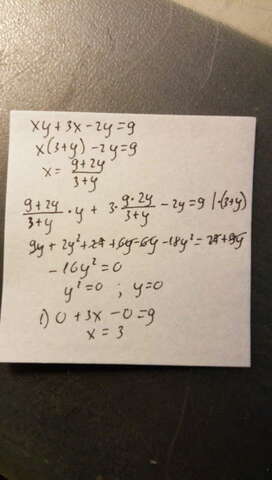 xy + 3x - 2y = 9
x(3+y) - 2y = 9
x = (9+2y)/(3+y)
(9+2y)/(3+y) · y + 3 · (9·2y)/(3+y) - 2y = 9 |·(3+y)
9y + 2y² + 27 + 6y - 6y - 18y² = 27 + 9y
-16y² = 0
y² = 0 ; y = 0
1) 0 + 3x - 0 = 9
x = 3